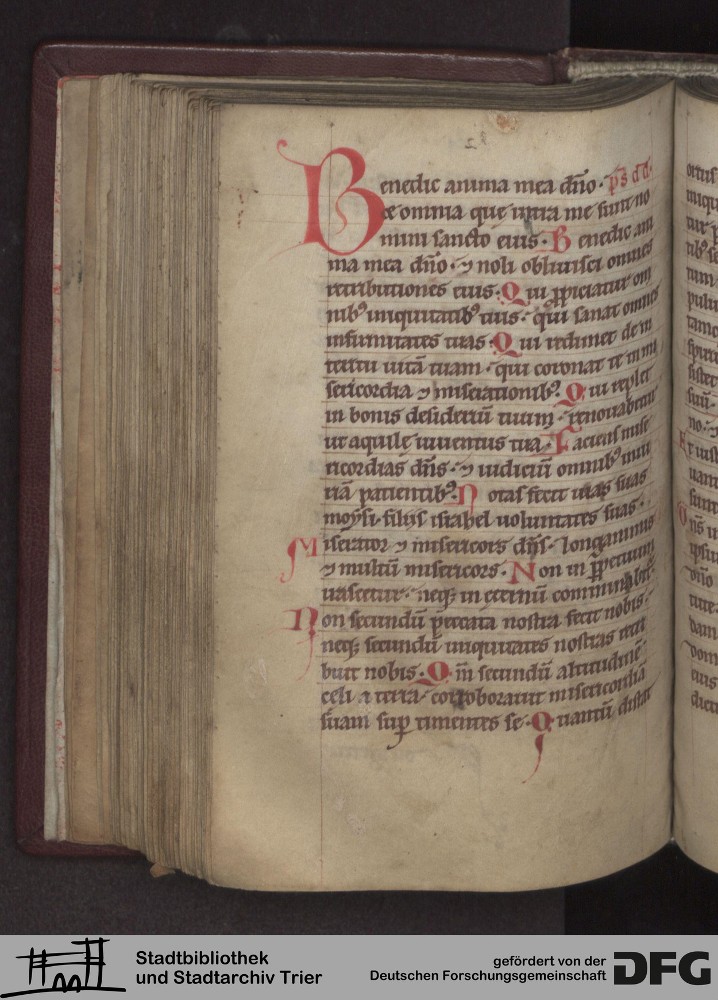 Benedic anima mea dño· p̄s d̄d̄
& omnia quę intra me sunt no
mini sancto eius· Benedic ani
ma mea dño· ⁊ noli obliuisci omnes
retributiones eius· Qui ꝓpiciatur om
nibꝰ iniquitatibꝰ tuis· qui sanat omnes
infirmitates tuas· Qui redimet de in
teritu uitā tuam· qui coronat te in mi
sericordia ⁊ miserationibꝰ· Qui replet
in bonis desideriū tuum· renouabitur
ut aquilę iuuentus tua· Faciens mise
ricordias dñs· ⁊ iudiciū omnibꝰ iniu
riā patientibꝰ· Notas fecit uias suas
moysi· filijs israhel uoluntates suas·
Miserator ⁊ misericors dñs· longanimis
⁊ multū misericors· Non in ꝑpetuum
irascetur· neqꝫ in eternū comminabitur
Non secundū peccata nostra fecit nobis·
neqꝫ secundū iniquitates nostras retri
buit nobis· Qm̄ secundū altitudinē
celi a terra· corroborauit misericordiā
suam suꝑ timentes se· Quantū distat
Stadtbibliothek
und Stadtarchiv Trier
gefördert von der
Deutschen Forschungsgemeinschaft
DFG